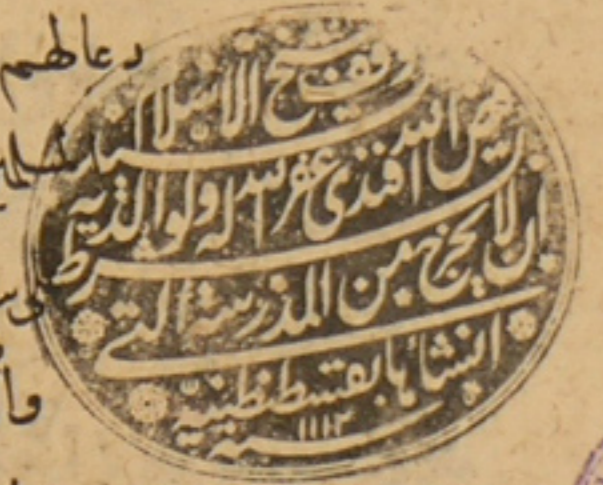 دعالهم
وقف شيخ الاسلام السيد
فيض الله افندى غفر الله له ولوالديه
بشرط ان لا يخرج من المدرسة التى
انشأها بقسطنطينية
سنة ١١١٢